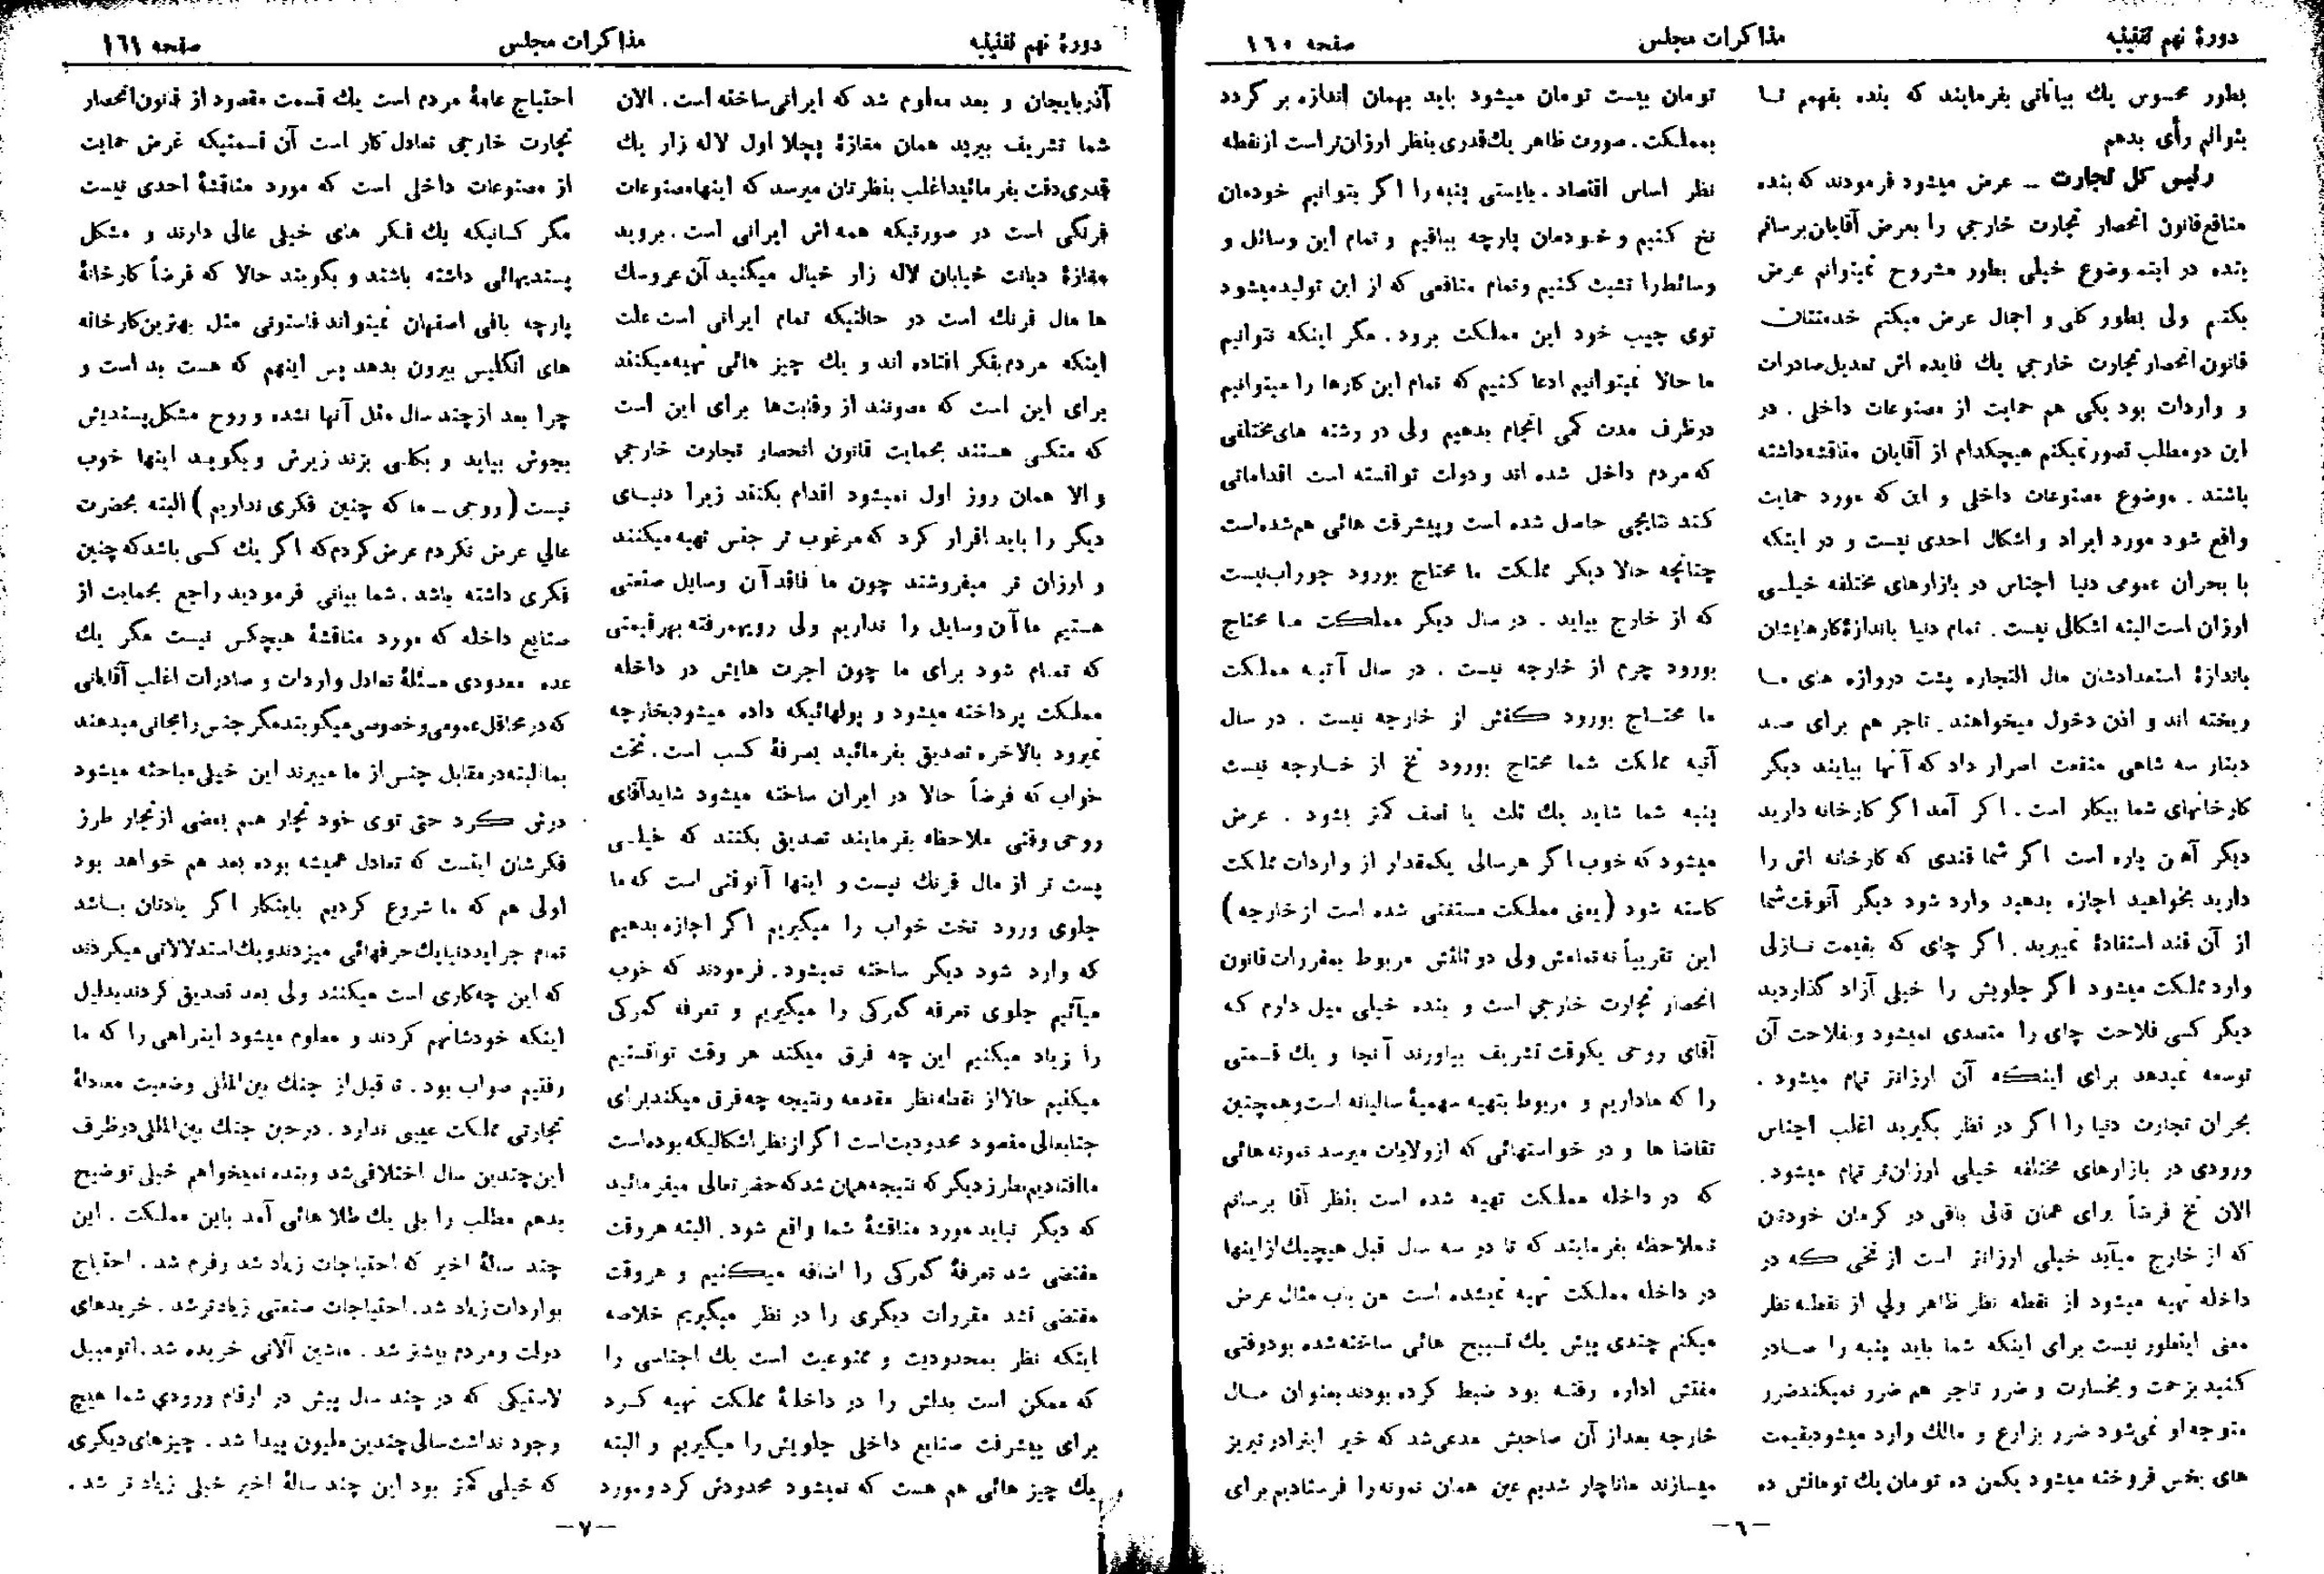 دورهٔ نهم تقنینیه
مذاکرات مجلس
صفحه ۱۶۰
بطور محسوس یك بیاناتی بفرمایند که بنده بفهمم تا
بتوانم رأی بدهم
رئیس کل تجارت ــ عرض میشود فرمودند که بنده
منافع قانون انحصار تجارت خارجی را بعرض آقایان برسانم
بنده در اینموضوع خیلی بطور مشروح نمیتوانم عرض
بکنم ولی بطور کلی و اجمال عرض میکنم خدمتتان
قانون انحصار تجارت خارجی یك فایده اش تعدیل صادرات
و واردات بود یکی هم حمایت از مصنوعات داخلی . در
این دو مطلب تصور نمیکنم هیچکدام از آقایان مناقشه داشته
باشند . موضوع مصنوعات داخلی و این که مورد حمایت
واقع شود مورد ایراد و اشکال احدی نیست و در اینکه
با بحران عمومی دنیا اجناس در بازارهای مختلفه خیلی
ارزان است البته اشکالی نیست . تمام دنیا باندازهٔ کارهایشان
باندازهٔ استعدادشان مال التجاره پشت دروازه های ما
ریخته اند و اذن دخول میخواهند . تاجر هم برای صد
دینار سه شاهی منفعت اصرار داد که آنها بیایند دیگر
کارخانهای شما بیکار است . اگر آمد اگر کارخانه دارید
دیگر آهن پاره است اگر شما قندی که کارخانه اش را
دارید بخواهید اجازه بدهید وارد شود دیگر آنوقت شما
از آن قند استفادهٔ نمیبرید . اگر چای که بقیمت نازلی
وارد مملکت میشود اگر جلویش را خیلی آزاد گذاردید
دیگر کسی فلاحت چای را متصدی نمیشود و بفلاحت آن
توسعه نمیدهد برای اینکه آن ارزانتر تمام میشود .
بحران تجارت دنیا را اگر در نظر بگیرید اغلب اجناس
ورودی در بازارهای مختلفه خیلی ارزان تر تمام میشود .
الان نخ فرضاً برای همان قالی بافی در کرمان خودتان
که از خارج میآید خیلی ارزانتر است از نخی که در
داخله تهیه میشود از نقطه نظر ظاهر ولی از نقطه نظر
معنی اینطور نیست برای اینکه شما باید پنبه را صادر
کنید بزحمت و بخسارت و ضرر تاجر هم ضرر نمیکند ضرر
متوجه او نمی‌شود ضرر بزارع و مالك وارد میشود بقیمت
های بخس فروخته میشود یکمن ده تومان یك تومانش ده
تومان بیست تومان میشود باید بهمان اندازه بر گردد
بمملکت . صورت ظاهر یك قدری بنظر ارزان تر است از نقطه
نظر اساس اقتصاد . بایستی پنبه را اگر بتوانیم خودمان
نخ کنیم و خودمان پارچه ببافیم و تمام این وسائل و
وسائط را تثبیت کنیم و تمام منافعی که از این تولید میشود
توی جیب خود این مملکت برود . مگر اینکه نتوانیم
ما حالا نمیتوانیم ادعا کنیم که تمام این کارها را میتوانیم
در ظرف مدت کمی انجام بدهیم ولی در رشته های مختلفی
که مردم داخل شده اند و دولت توانسته است اقداماتی
کند نتایجی حاصل شده است و پیشرفت هائی هم شده است
چنانچه حالا دیگر مملکت ما محتاج بورود جوراب نیست
که از خارج بیاید . در سال دیگر مملکت ما محتاج
بورود چرم از خارجه نیست . در سال آتیه مملکت
ما محتاج بورود کفش از خارجه نیست . در سال
آتیه مملکت شما محتاج بورود نخ از خارجه نیست
پنبه شما شاید یك ثلث یا نصف کمتر بشود . عرض
میشود که خوب اگر هر سالی یکمقدار از واردات مملکت
کاسته شود (یعنی مملکت مستغنی شده است از خارجه)
این تقریباً نه تمامش ولی دو ثلثش مربوط بمقررات قانون
انحصار تجارت خارجی است و بنده خیلی میل دارم که
آقای روحی یکوقت تشریف بیاورند آنجا و یك قسمتی
را که ما داریم و مربوط بتهیه سهمیهٔ سالیانه است و همچنین
تقاضا ها و در خواستهائی که از ولایات میرسد نمونه هائی
که در داخله مملکت تهیه شده است بنظر آقا برسانم
تا ملاحظه بفرمایند که تا دو سه سال قبل هیچیك از اینها
در داخله مملکت تهیه نمیشده است من باب مثال عرض
میکنم چندی پیش یك تسبیح هائی ساخته شده بود وقتی
مفتش اداره رفته بود ضبط کرده بودند بعنوان مال
خارجه بعد از آن صاحبش مدعی شد که خیر اینرا در تبریز
میسازند ما ناچار شدیم عین همان نمونه را فرستادیم برای
ــ ۶ ــ
دورهٔ نهم تقنینیه
مذاکرات مجلس
صفحه ۱۶۱
آذربایجان و بعد معلوم شد که ایرانی ساخته است . الان
شما تشریف ببرید همان مغازهٔ پچلا اول لاله زار یك
قدری دقت بفرمائید اغلب بنظرتان میرسد که اینها مصنوعات
فرنگی است در صورتیکه همه اش ایرانی است . بروید
مغازهٔ دیانت خیابان لاله زار خیال میکنید آن عروسك
ها مال فرنك است در حالتیکه تمام ایرانی است علت
اینکه مردم بفکر افتاده اند و یك چیز هائی تهیه میکنند
برای این است که مصونند از رقابت‌ها برای این است
که متکی هستند بحمایت قانون انحصار تجارت خارجی
و الا همان روز اول نمیشود اقدام بکنند زیرا دنیای
دیگر را باید اقرار کرد که مرغوب تر جنس تهیه میکنند
و ارزان تر میفروشند چون ما فاقد آن وسایل صنعتی
هستیم ما آن وسایل را نداریم ولی رویهمرفته بهر قیمتی
که تمام شود برای ما چون اجرت هایش در داخله
مملکت پرداخته میشود و پولهائیکه داده میشود بخارجه
نمیرود بالاخره تصدیق بفرمائید بصرفهٔ کسب است . تخت
خواب که فرضاً حالا در ایران ساخته میشود شاید آقای
روحی وقتی ملاحظه بفرمایند تصدیق بکنند که خیلی
پست تر از مال فرنك نیست و اینها آنوقتی است که ما
جلوی ورود تخت خواب را میگیریم اگر اجازه بدهیم
که وارد شود دیگر ساخته نمیشود . فرمودند که خوب
میآئیم جلوی تعرفه گمرکی را میگیریم و تعرفه گمرکی
را زیاد میکنیم این چه فرق میکند هر وقت توانستیم
میکنیم حالا از نقطه نظر مقدمه و نتیجه چه فرق میکند برای
جنابعالی مقصود محدودیت است اگر از نظر اشکالیکه بوده است
ما افتادیم بطرز دیگر که نتیجه همان شد که حضرتعالی میفرمائید
که دیگر نباید مورد مناقشهٔ شما واقع شود . البته هر وقت
مقتضی شد تعرفهٔ گمرکی را اضافه میکنیم و هر وقت
مقتضی نشد مقررات دیگری را در نظر میگیریم خلاصه
اینکه نظر بمحدودیت و ممنوعیت است یك اجناسی را
که ممکن است بدلش را در داخلهٔ مملکت تهیه کرد
برای پیشرفت صنایع داخلی جلویش را میگیریم و البته
یك چیز هائی هم هست که نمیشود محدودش کرد و مورد
احتیاج عامهٔ مردم است یك قسمت مقصود از قانون انحصار
تجارت خارجی تعادل کار است آن قسمتیکه غرض حمایت
از مصنوعات داخلی است که مورد مناقشهٔ احدی نیست
مگر کسانیکه یك فکر های خیلی عالی دارند و مشکل
پسندیهائی داشته باشند و بگویند حالا که فرضاً کارخانهٔ
پارچه بافی اصفهان نمیتواند فاستونی مثل بهترین کارخانه
های انگلیس بیرون بدهد پس اینهم که هست بد است و
چرا بعد از چند سال مثل آنها نشده و روح مشکل پسندیش
بجوش بیاید و بکلی بزند زیرش و بگوید اینها خوب
نیست (روحی ــ ما که چنین فکری نداریم) البته بحضرت
عالی عرض نکردم عرض کردم که اگر یك کسی باشد که چنین
فکری داشته باشد . شما بیانی فرمودید راجع بحمایت از
صنایع داخله که مورد مناقشهٔ هیچکس نیست مگر یك
عده معدودی مسئلهٔ تعادل واردات و صادرات اغلب آقایانی
که در محافل عمومی و خصوصی میگویند مگر جنس را مجانی میدهند
بما البته در مقابل جنس از ما میبرند این خیلی مباحثه میشود
درش کرد حتی توی خود تجار هم بعضی از تجار طرز
فکرشان اینست که تعادل همیشه بوده بعد هم خواهد بود
اولی هم که ما شروع کردیم باینکار اگر یادتان باشد
تمام جراید دنیا یك حرفهائی میزدند و یك استدلالاتی میکردند
که این چه کاری است میکنند ولی بعد تصدیق کردند بدلیل
اینکه خودشانهم کردند و معلوم میشود اینراهی را که ما
رفتیم صواب بود . تا قبل از جنك بین‌المللی وضعیت معادلهٔ
تجارتی مملکت عیبی ندارد . در حین جنك بین‌المللی در ظرف
این چندین سال اختلافی شد و بنده نمیخواهم خیلی توضیح
بدهم مطلب را بلی یك طلا هائی آمد باین مملکت . این
چند سالهٔ اخیر که احتیاجات زیاد شد و فرم شد . احتیاج
بواردات زیاد شد . احتیاجات صنعتی زیادتر شد . خریدهای
دولت و مردم بیشتر شد . ماشین آلاتی خریده شد . اتومبیل
لاستیکی که در چند سال پیش در ارقام ورودی شما هیچ
وجود نداشت سالی چندین ملیون پیدا شد . چیزهای دیگری
که خیلی کمتر بود این چند سالهٔ اخیر خیلی زیاد تر شد .
ــ ۷ ــ